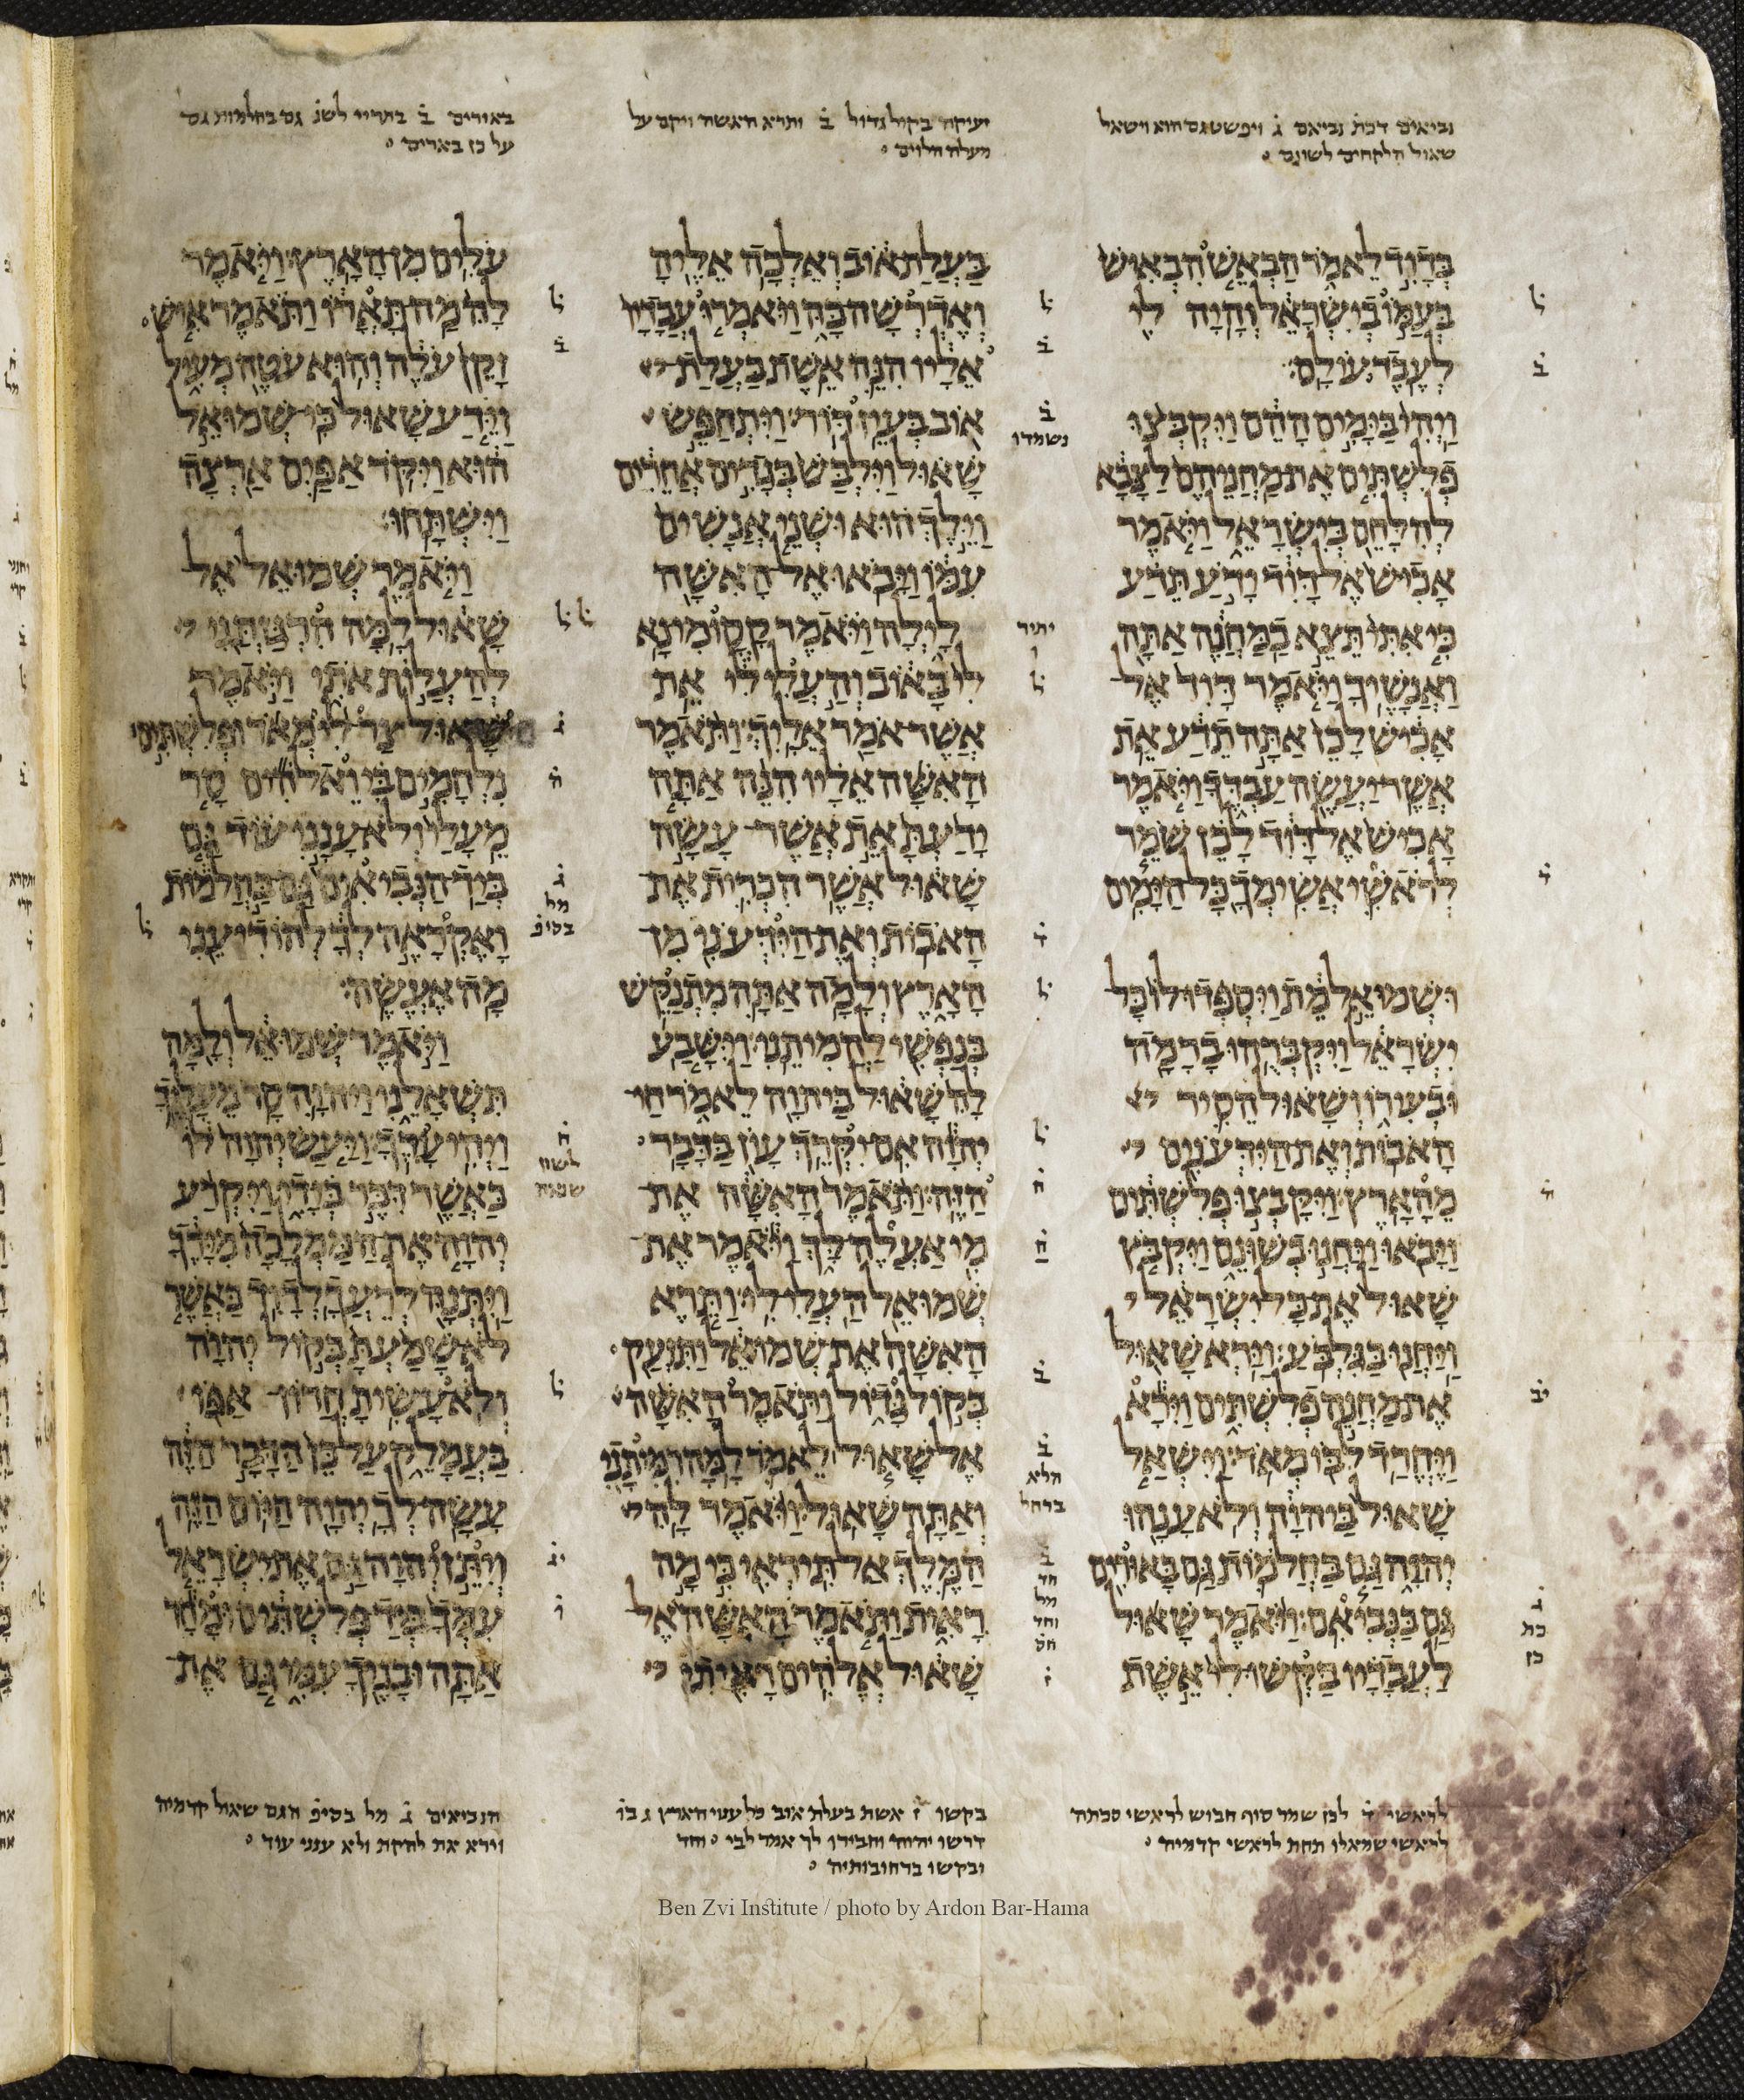 נביאים דכת נביאם גׄ ויפשט גם הוא וישאל
שאול הלקחים לשונם
יעיקה בקול גדול בׄ ותרא האשה ויקם על
מעלה הלוים
באורים בׄ בתריי לשנ גם בחלמות גם
על כן בארים
בְּדָוִ֖ד לֵאמֹ֑ר הַבְאֵ֤שׁ הִבְאִישׁ֙
בְּעַמּ֣וֹ בְיִשְׂרָאֵ֔ל וְהָ֥יָה לִ֖י
לְעֶ֥בֶד עוֹלָֽם׃
וַֽיְהִי֙ בַּיָּמִ֣ים הָהֵ֔ם וַיִּקְבְּצ֨וּ
פְלִשְׁתִּ֤ים אֶת מַֽחֲנֵיהֶם֙ לַצָּבָ֔א
לְהִלָּחֵ֖ם בְּיִשְׂרָאֵ֑ל וַיֹּ֤אמֶר
אָכִישׁ֙ אֶל דָּוִ֔ד יָדֹ֣עַ תֵּדַ֗ע
כִּ֤י אִתִּי֙ תֵּצֵ֣א בַֽמַּחֲנֶ֔ה אַתָּ֖ה
וַאֲנָשֶֽׁיךָ׃ וַיֹּ֤אמֶר דָּוִד֙ אֶל
אָכִ֔ישׁ לָכֵן֙ אַתָּ֣ה תֵדַ֔ע אֵ֥ת
אֲשֶׁר יַעֲשֶׂ֖ה עַבְדֶּ֑ךָ וַיֹּ֤אמֶר
אָכִישׁ֙ אֶל דָּוִ֔ד לָכֵ֗ן שֹׁמֵ֧ר
לְרֹאשִׁ֛י אֲשִֽׂימְךָ֖ כׇּל הַיָּמִֽים׃
וּשְׁמוּאֵ֣ל מֵ֔ת וַיִּסְפְּדוּ לוֹ֙ כׇּל
יִשְׂרָאֵ֔ל וַיִּקְבְּרֻ֥הוּ בָרָמָ֖ה
וּבְעִיר֑וֹ וְשָׁא֗וּל הֵסִ֛יר
הָאֹב֥וֹת וְאֶת הַיִּדְּעֹנִ֖ים
מֵהָאָֽרֶץ׃ וַיִּקָּבְצ֣וּ פְלִשְׁתִּ֔ים
וַיָּבֹ֖אוּ וַיַּחֲנ֣וּ בְשׁוּנֵ֑ם וַיִּקְבֹּ֤ץ
שָׁאוּל֙ אֶת כׇּל יִשְׂרָאֵ֔ל
וַֽיַּחֲנ֖וּ בַּגִּלְבֹּֽעַ׃ וַיַּ֥רְא שָׁא֖וּל
אֶת מַחֲנֵ֣ה פְלִשְׁתִּ֑ים וַיִּרָ֕א
וַיֶּחֱרַ֥ד לִבּ֖וֹ מְאֹֽד׃ וַיִּשְׁאַ֤ל
שָׁאוּל֙ בַּיהֹוָ֔ה וְלֹ֥א עָנָ֖הוּ
יְהֹוָ֑ה גַּ֧ם בַּחֲלֹמ֛וֹת גַּ֥ם בָּאוּרִ֖ים
גַּ֥ם בַּנְּבִיאִֽם׃ וַיֹּ֨אמֶר שָׁא֜וּל
לַעֲבָדָ֗יו בַּקְּשׁוּ לִי֙ אֵ֣שֶׁת
בַּעֲלַת א֔וֹב וְאֵלְכָ֥ה אֵלֶ֖יהָ
וְאֶדְרְשָׁה בָּ֑הּ וַיֹּאמְר֤וּ עֲבָדָיו֙
אֵלָ֔יו הִנֵּ֛ה אֵ֥שֶׁת בַּֽעֲלַת
א֖וֹב בְּעֵ֥ין דּֽוֹר׃ וַיִּתְחַפֵּ֣שׂ
שָׁא֗וּל וַיִּלְבַּשׁ֙ בְּגָדִ֣ים אֲחֵרִ֔ים
וַיֵּ֣לֶךְ ה֗וּא וּשְׁנֵ֤י אֲנָשִׁים֙
עִמּ֔וֹ וַיָּבֹ֥אוּ אֶל הָאִשָּׁ֖ה
לָ֑יְלָה וַיֹּ֗אמֶר קָסֳומִי נָ֥א
לִי֙ בָּא֔וֹב וְהַ֣עֲלִי לִ֔י אֵ֥ת
אֲשֶׁר אֹמַ֖ר אֵלָֽיִךְ׃ וַתֹּ֨אמֶר
הָאִשָּׁ֜ה אֵלָ֗יו הִנֵּ֨ה אַתָּ֤ה
יָדַ֙עְתָּ֙ אֵ֣ת אֲשֶׁר עָשָׂ֣ה
שָׁא֔וּל אֲשֶׁ֥ר הִכְרִ֛ית אֶת
הָאֹב֥וֹת וְאֶת הַיִּדְּעֹנִ֖י מִן
הָאָ֑רֶץ וְלָמָ֥ה אַתָּ֛ה מִתְנַקֵּ֥שׁ
בְּנַפְשִׁ֖י לַהֲמִיתֵֽנִי׃ וַיִּשָּׁ֤בַֽע
לָהּ֙ שָׁא֔וּל בַּיהֹוָ֖ה לֵאמֹ֑ר חַי
יְהֹוָ֕ה אִֽם יִקְּרֵ֥ךְ עָוֺ֖ן בַּדָּבָ֥ר
הַזֶּֽה׃ וַתֹּ֙אמֶר֙ הָֽאִשָּׁ֔ה אֶת
מִ֖י אַעֲלֶה לָּ֑ךְ וַיֹּ֕אמֶר אֶת
שְׁמוּאֵ֖ל הַֽעֲלִי לִֽי׃ וַתֵּ֤רֶא
הָֽאִשָּׁה֙ אֶת שְׁמוּאֵ֔ל וַתִּזְעַ֖ק
בְּק֣וֹל גָּד֑וֹל וַתֹּ֩אמֶר֩ הָאִשָּׁ֨ה
אֶל שָׁא֧וּל לֵאמֹ֛ר לָ֥מָּה רִמִּיתָ֖נִי
וְאַתָּ֥ה שָׁאֽוּל׃ וַיֹּ֨אמֶר לָ֥הּ
הַמֶּ֛לֶךְ אַל תִּֽירְאִ֖י כִּ֣י מָ֣ה
רָאִ֑ית וַתֹּ֤אמֶר הָאִשָּׁה֙ אֶל
שָׁא֔וּל אֱלֹהִ֥ים רָאִ֖יתִי
עֹלִ֥ים מִן הָאָֽרֶץ׃ וַיֹּ֤אמֶר
לָהּ֙ מַֽה תׇּאֳר֔וֹ וַתֹּ֗אמֶר אִ֤ישׁ
זָקֵן֙ עֹלֶ֔ה וְה֥וּא עֹטֶ֖ה מְעִ֑יל
וַיֵּ֤דַע שָׁאוּל֙ כִּֽי שְׁמוּאֵ֣ל
ה֔וּא וַיִּקֹּ֥ד אַפַּ֛יִם אַ֖רְצָה
וַיִּשְׁתָּֽחוּ׃
וַיֹּ֤אמֶר שְׁמוּאֵל֙ אֶל
שָׁא֔וּל לָ֥מָּה הִרְגַּזְתַּ֖נִי
לְהַעֲל֣וֹת אֹתִ֑י וַיֹּ֣אמֶר
שָׁ֠אוּל צַר לִ֨י מְאֹ֜ד וּפְלִשְׁתִּ֣ים
נִלְחָמִ֣ים בִּ֗י וֵאלֹהִ֞ים סָ֤ר
מֵֽעָלַי֙ וְלֹא עָנָ֣נִי ע֗וֹד גַּ֤ם
בְּיַֽד הַנְּבִיאִם֙ גַּם בַּ֣חֲלֹמ֔וֹת
וָאֶקְרָאֶ֣ה לְךָ֔ לְהוֹדִיעֵ֖נִי
מָ֥ה אֶעֱשֶֽׂה׃
וַיֹּ֣אמֶר שְׁמוּאֵ֔ל וְלָ֖מָּה
תִּשְׁאָלֵ֑נִי וַיהֹוָ֛ה סָ֥ר מֵעָלֶ֖יךָ
וַיְהִ֥י עָרֶֽךָ׃ וַיַּ֤עַשׂ יְהֹוָה֙ ל֔וֹ
כַּאֲשֶׁ֖ר דִּבֶּ֣ר בְּיָדִ֑י וַיִּקְרַ֨ע
יְהֹוָ֤ה אֶת הַמַּמְלָכָה֙ מִיָּדֶ֔ךָ
וַֽיִּתְּנָ֖הּ לְרֵעֲךָ֥ לְדָוִֽד׃ כַּאֲשֶׁ֤ר
לֹֽא שָׁמַ֙עְתָּ֙ בְּק֣וֹל יְהֹוָ֔ה
וְלֹא עָשִׂ֥יתָ חֲרוֹן אַפּ֖וֹ
בַּעֲמָלֵ֑ק עַל כֵּן֙ הַדָּבָ֣ר הַזֶּ֔ה
עָשָֽׂה לְךָ֥ יְהֹוָ֖ה הַיּ֥וֹם הַזֶּֽה׃
וְיִתֵּ֣ן יְ֠הֹוָ֠ה גַּ֣ם אֶת יִשְׂרָאֵ֤ל
עִמְּךָ֙ בְּיַד פְּלִשְׁתִּ֔ים וּמָחָ֕ר
אַתָּ֥ה וּבָנֶ֖יךָ עִמִּ֑י גַּ֚ם אֶת
נשמדו
יתיר
ו
הלא
ברחל
מל
בסיפ
לשון
שנאה
כת
כן
לראשי דׄ לכן שמר סוף חבוש לראשי סבתה
לראשי שמאלו תחת לראשי קדמיה
בקשו זׄ אשת בעלת אוב כל ענוי הארץ ג בו
דרשו יהוה וחבירו לך אמר לבי וחד
ובקשו ברחובותיה
הנביאים גׄ מל בסיפ הגם שאול קדמיה
וירא את להקת ולא ענני עוד
Ben Zvi Institute / photo by Ardon Bar-Hama